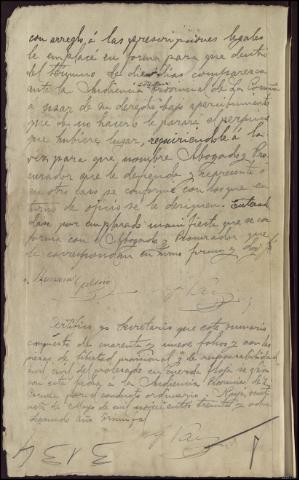 con arreglo, á las prescripciones legales
le emplacé en forma para que dentro
del término de diez dias comparezca
ante la Audiencia Provincial de La Coruña
á usar de su derecho bajo apercibimiento
que de no hacerlo le parará el perjuicio
que hubiere lugar, requiriendole á la
vez para que nombre Abogado y Pro-
curador que le defienda y represente ó
en otro caso se conforme con los que en
turno de oficio se le designen. Entera-
do emplazado manifiesta que se con-
forma con el Abogado y Procurador que
le correspondan en turno firma y doy fé
Certifico yo Secretario que este sumario
compuesto de cuarenta y nueve folios y con
piezas de libertad provisional y de responsabilidad
civil del procesado en
con esta fecha á la Audiencia Provincial de La
Coruña por el conducto ordinario.
de Mayo de mil novecientos treinta y ocho
segundo año triunfal